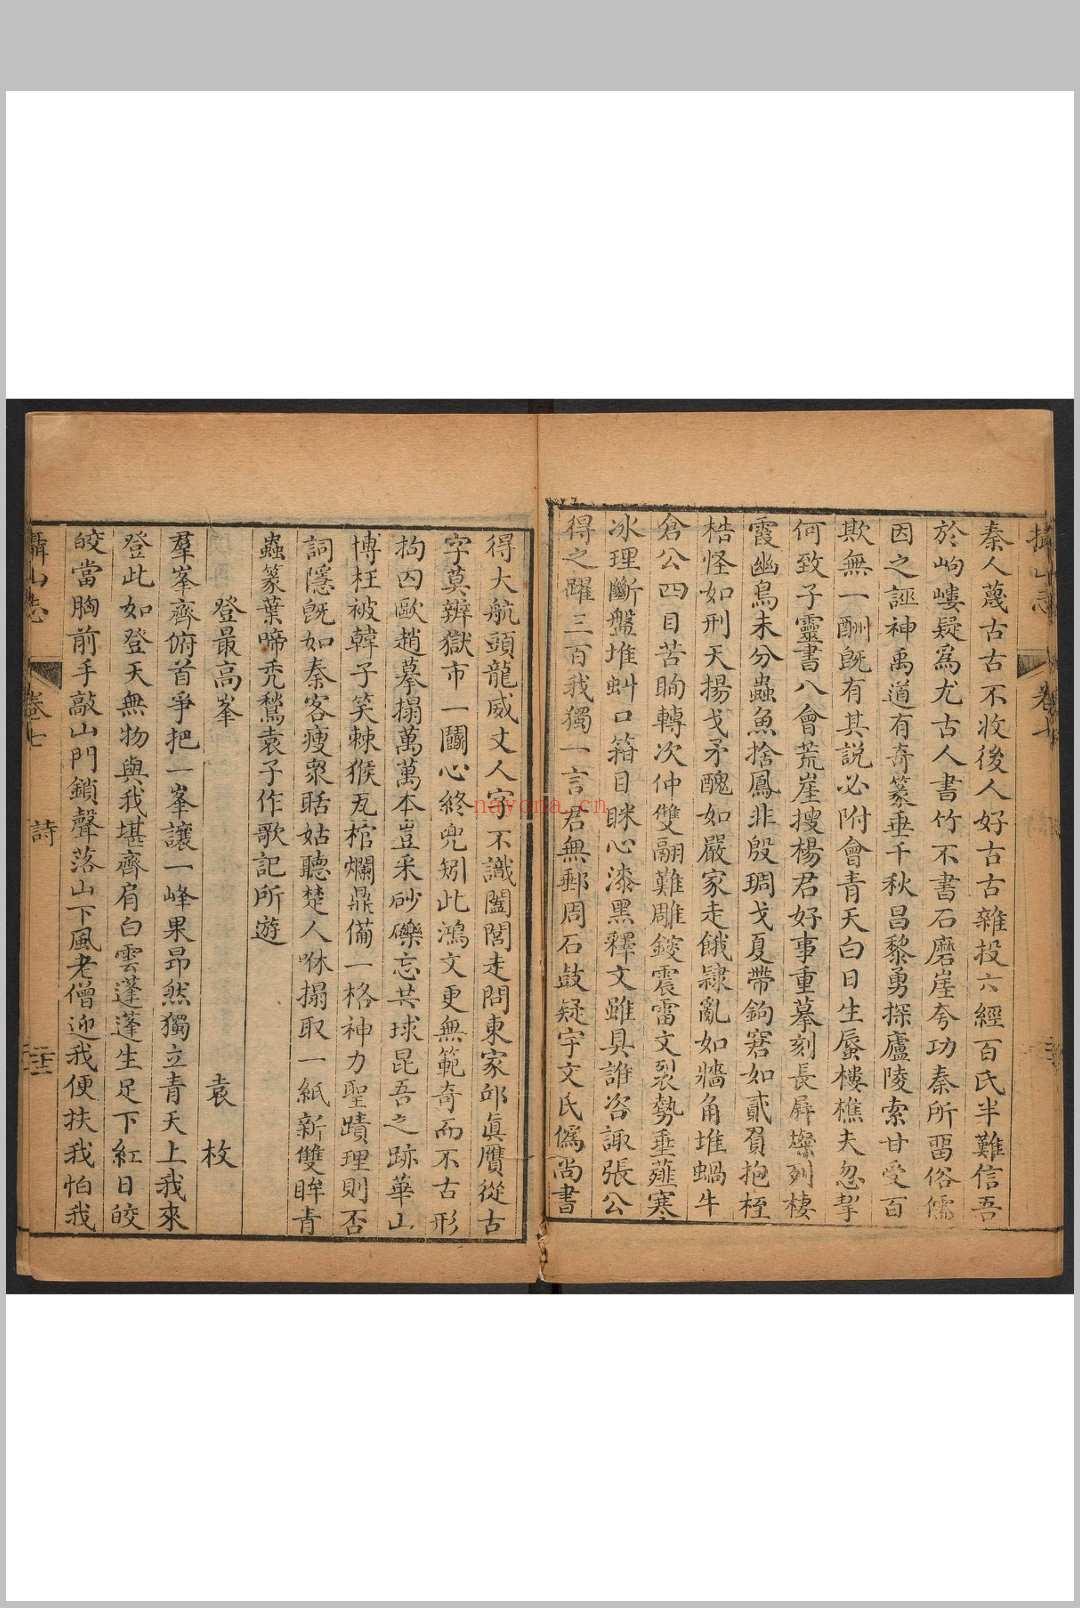 秦人蔑古古不收後人好古古雜投六經百氏半難信吾
於岣嶁疑爲尤古人書竹不書石磨崖夸功秦所留俗儒
因之誣神禹道有奇篆垂千秋昌黎勇探廬陵索甘受百
欺無一酬既有其説必附會青天白日生蜃樓樵夫忽挈
何致子靈書八會荒崖搜楊君好事重摹刻長屏燦列棲
霞幽鳥未分蟲魚捨鳳非殷琱戈夏帶鉤窘如貳負抱桎
梏怪如刑天揚戈矛醜如嚴家走餓隸亂如牆角堆蝸牛
倉公四目苦眴轉次仲雙翮難雕鎪震雷文裂勢垂薤寒
冰理斷盤堆蚪口箝目眯心漆黑釋文雖具誰咨諏張公
得之躍三百我獨一言君無郵周石鼓疑宇文氏僞尚書
得大航頭龍威丈人字不識闔閭走問東家邱真贋從古
字莫辨獄市一鬨心終兜矧此鴻文更無範奇而不古形
拘囚歐趙摹搨萬萬本豈采砂礫忘共球昆吾之跡華山
博枉被韓子笑棘猴瓦棺爛鼎備一格神力聖蹟理則否
詞隱旣如秦客瘦衆聒姑聽楚人咻搨取一紙新雙眸青
蟲篆葉啼禿鶖袁子作歌記所遊
登最高峯
袁枚
羣峯齊俯首爭把一峯讓一峰果昂然獨立青天上我來
登此如登天無物與我堪齊肩白雲蓬蓬生足下紅日皎
皎當胸前手敲山門鎖聲落山下風老僧迎我便扶我怕我
攝山志
卷七
詩